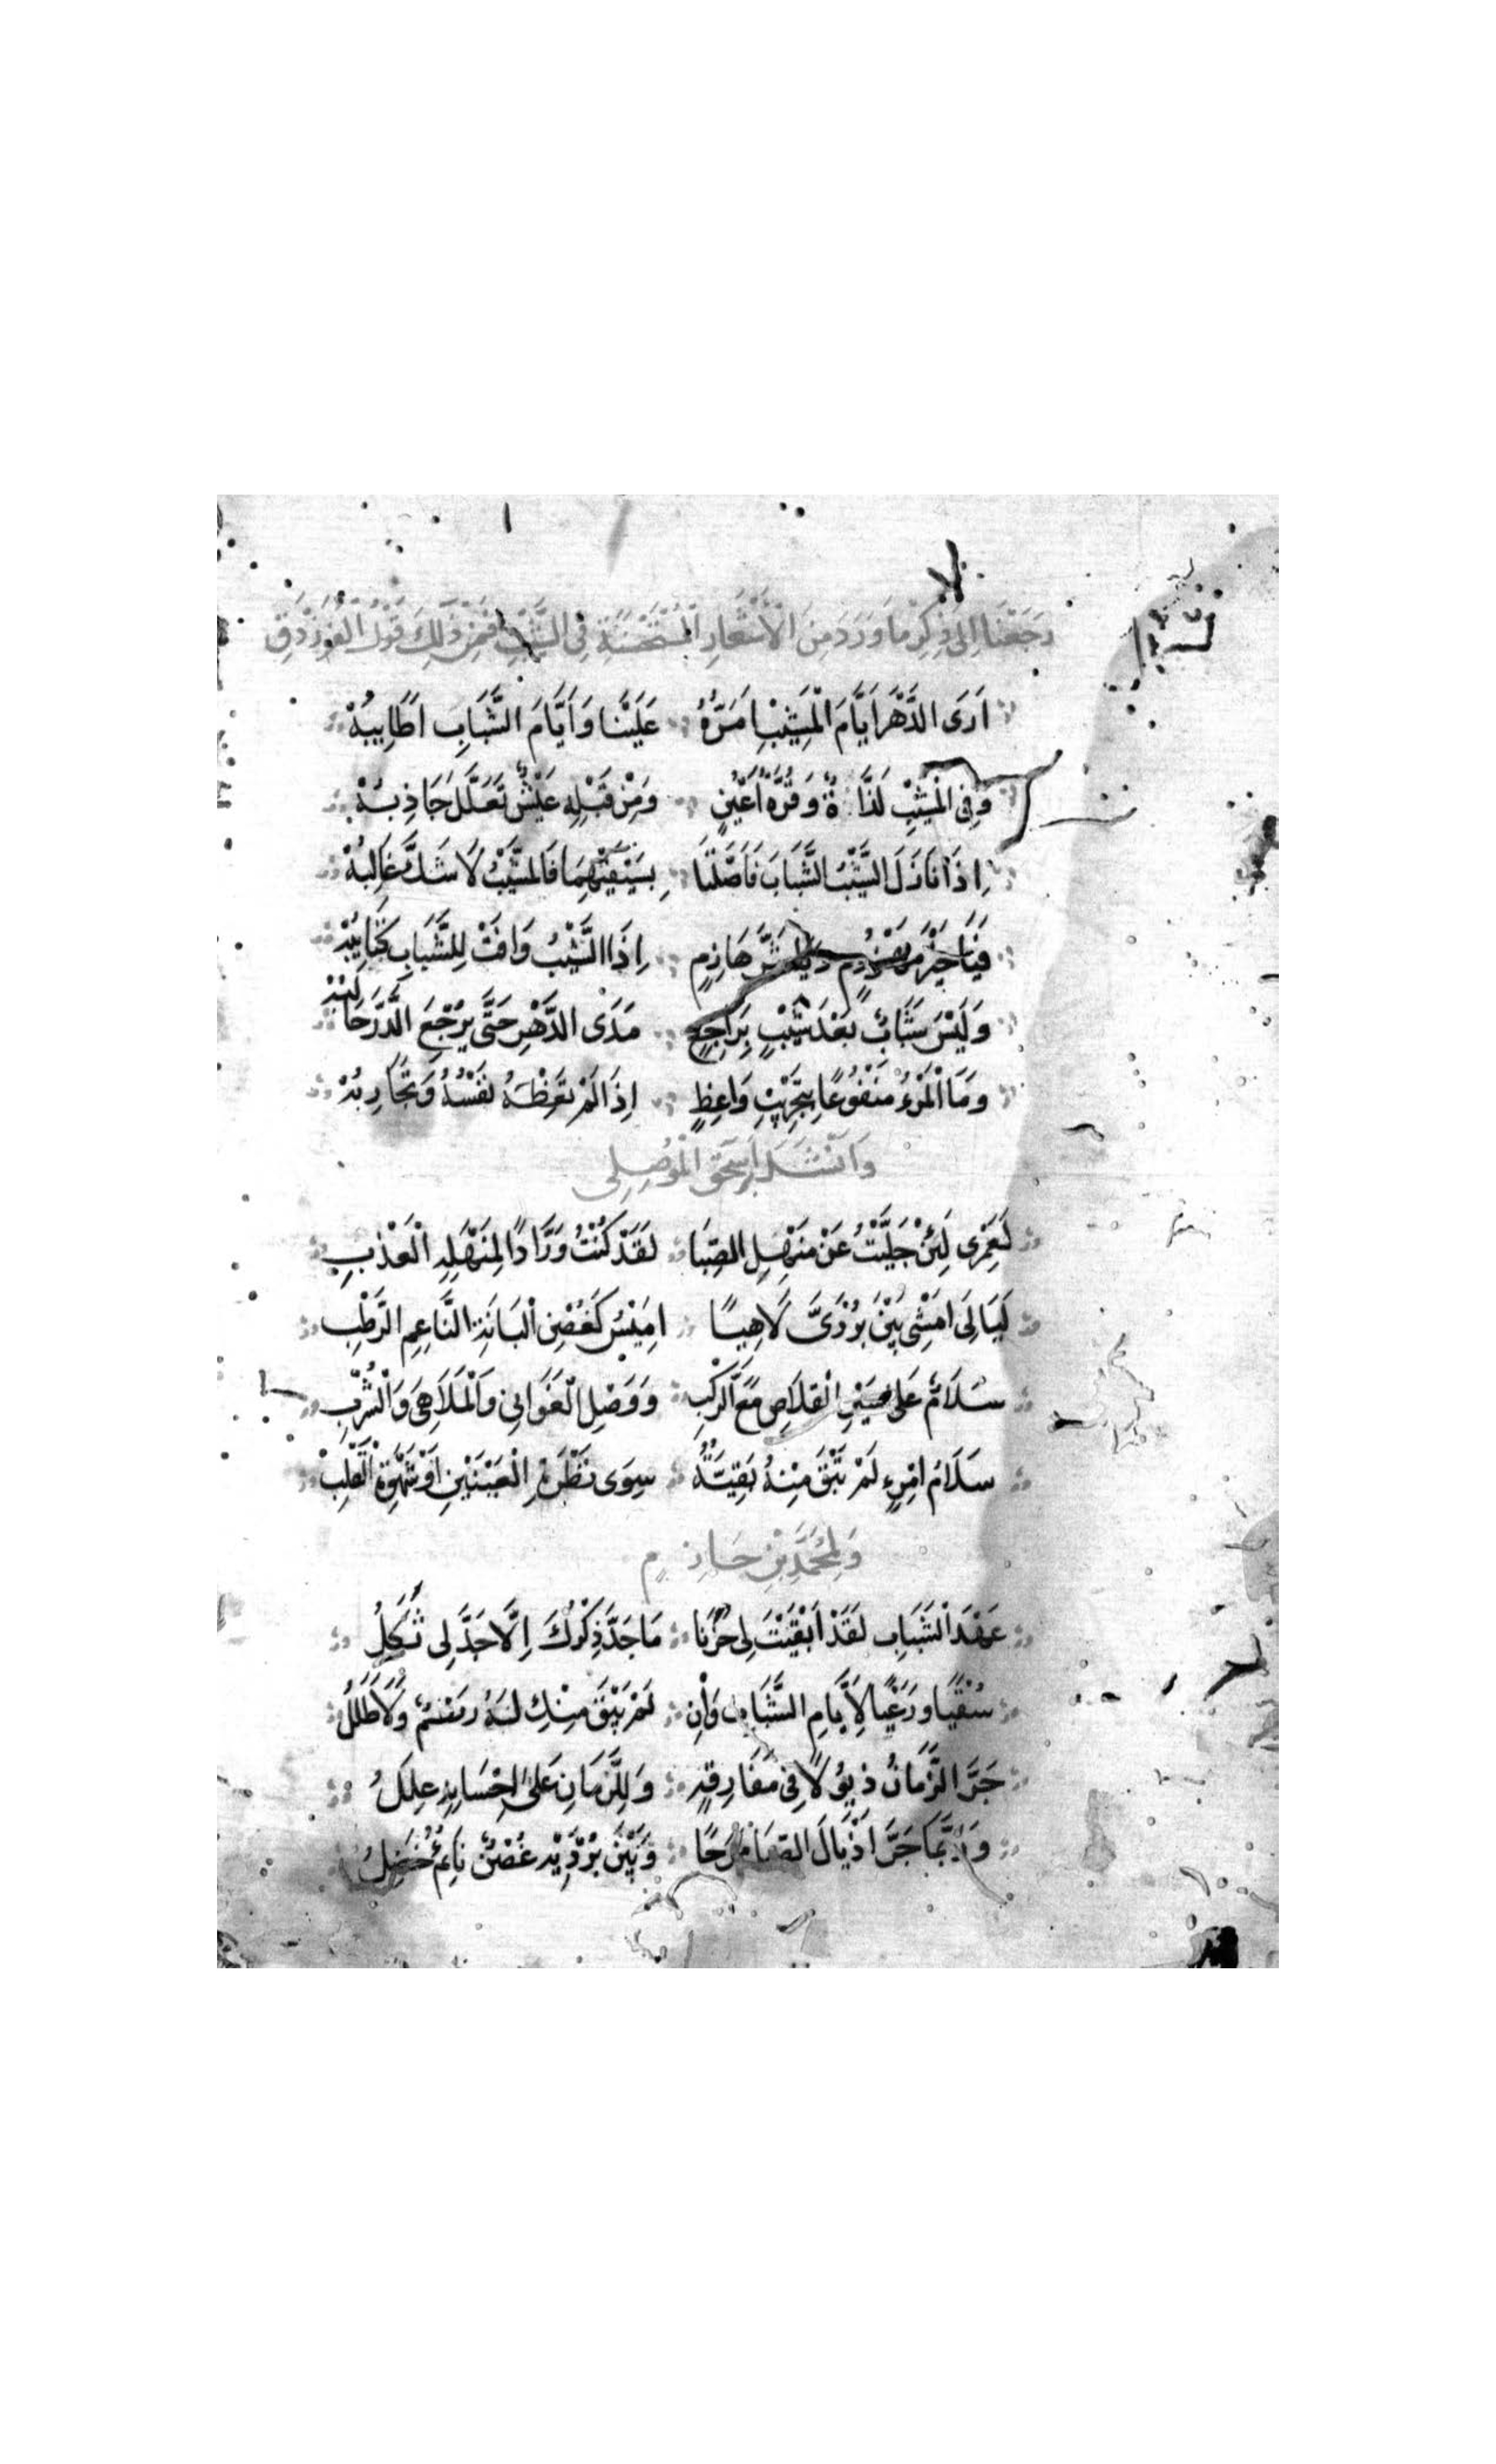 رَجَعْنَا اِلى ذِكْرِ مَا وَرَدَ مِنَ الْاَشْعَارِ الْمُسْتَحْسَنَةِ فِي الشَّيْبِ فَمِنْ ذٰلِكَ قَوْلُ الْفَرَزْدَقِ
اَرَى الدَّهْرَ اَيَّامَ الْمَشِيْبِ اَمَرَّهُ عَلَيْنَا وَاَيَّامَ الشَّبَابِ اَطَايِبُهْ
وَفِي الْمَشِيْبِ لَذَّاةٌ وَقُرَّةُ اَعْيُنٍ وَمِنْ قَبْلِهِ عَيْشٌ تَعَلَّلَ جَاذِبُهْ
اِذَا نَازَلَ الشَّيْبُ الشَّبَابَ فَاَصْلَتَا بِسَيْفَيْهِمَا فَالشَّيْبُ لَا شَكَّ غَالِبُهْ
فَيَا خَيْرَ مَهْزُومٍ وَيَا شَرَّ هَازِمٍ اِذَا الشَّيْبُ وَافَتْ لِلشَّبَابِ كَتَايِبُهْ
وَلَيْسَ شَبَابٌ بَعْدَ شَيْبٍ بِرَاجِعٍ مَدَى الدَّهْرِ حَتَّى يَرْجِعَ الدَّرَّ حَالِبُهْ
وَمَا الْمَرْءُ مَنْفُوعًا بِتَجْرِيْبِ وَاعِظٍ اِذَا لَمْ تَعِظْهُ نَفْسُهُ وَتَجَارِبُهْ
وَاَنْشَدَ اِسْحٰقُ الْمَوْصِلِى
لَعَمْرِى لَئِنْ حَلَّيْتُ عَنْ مَنْهَلِ الصِّبَا لَقَدْ كُنْتُ وَرَّادًا لِمَنْهَلِهِ الْعَذْبِ
لَيَالِىَ اَمْشِى بَيْنَ بُرْدَىَّ لَاهِيًا اَمِيْسُ كَغُصْنِ الْبَانَةِ النَّاعِمِ الرَّطْبِ
سَلَامٌ عَلى سَيْرِ الْقِلَاصِ مَعَ الرَّكْبِ وَوَصْلِ الْغَوَانِى وَالْمَلَاهِىَ وَالشُّرْبِ
سَلَامُ امْرِءٍ لَمْ تَبْقَ مِنْهُ بَقِيَّةٌ سِوَى نَظَرِ الْعَيْنَيْنِ اَوْ شَهْوَةِ الْقَلْبِ
وَلِمُحَمَّدِ بْنِ حَازِمٍ
عَهْدَ الشَّبَابِ لَقَدْ اَبْقَيْتَ لِى حَزَنًا مَا جَدَّ ذِكْرُكَ اِلَّا جَدَّ لِى ثَكَلُ
سُقْيًا وَرَعْيًا لِاَيَّامِ الشَّبَابِ وَاِنْ لَمْ يَبْقَ مِنْكِ لَهُ رَسْمٌ وَلَا طَلَلُ
جَرَّ الزَّمَانُ ذُيُوْلًا فِى مَفَارِقِهِ وَلِلزَّمَانِ عَلى اِحْسَانِهِ عِلَلُ
وَرُبَّمَا جَرَّ اَذْيَالَ الصِّبَا مَرَحًا وَبَيْنَ بُرْدَيْهِ غُصْنٌ نَاعِمٌ خَضِلُ